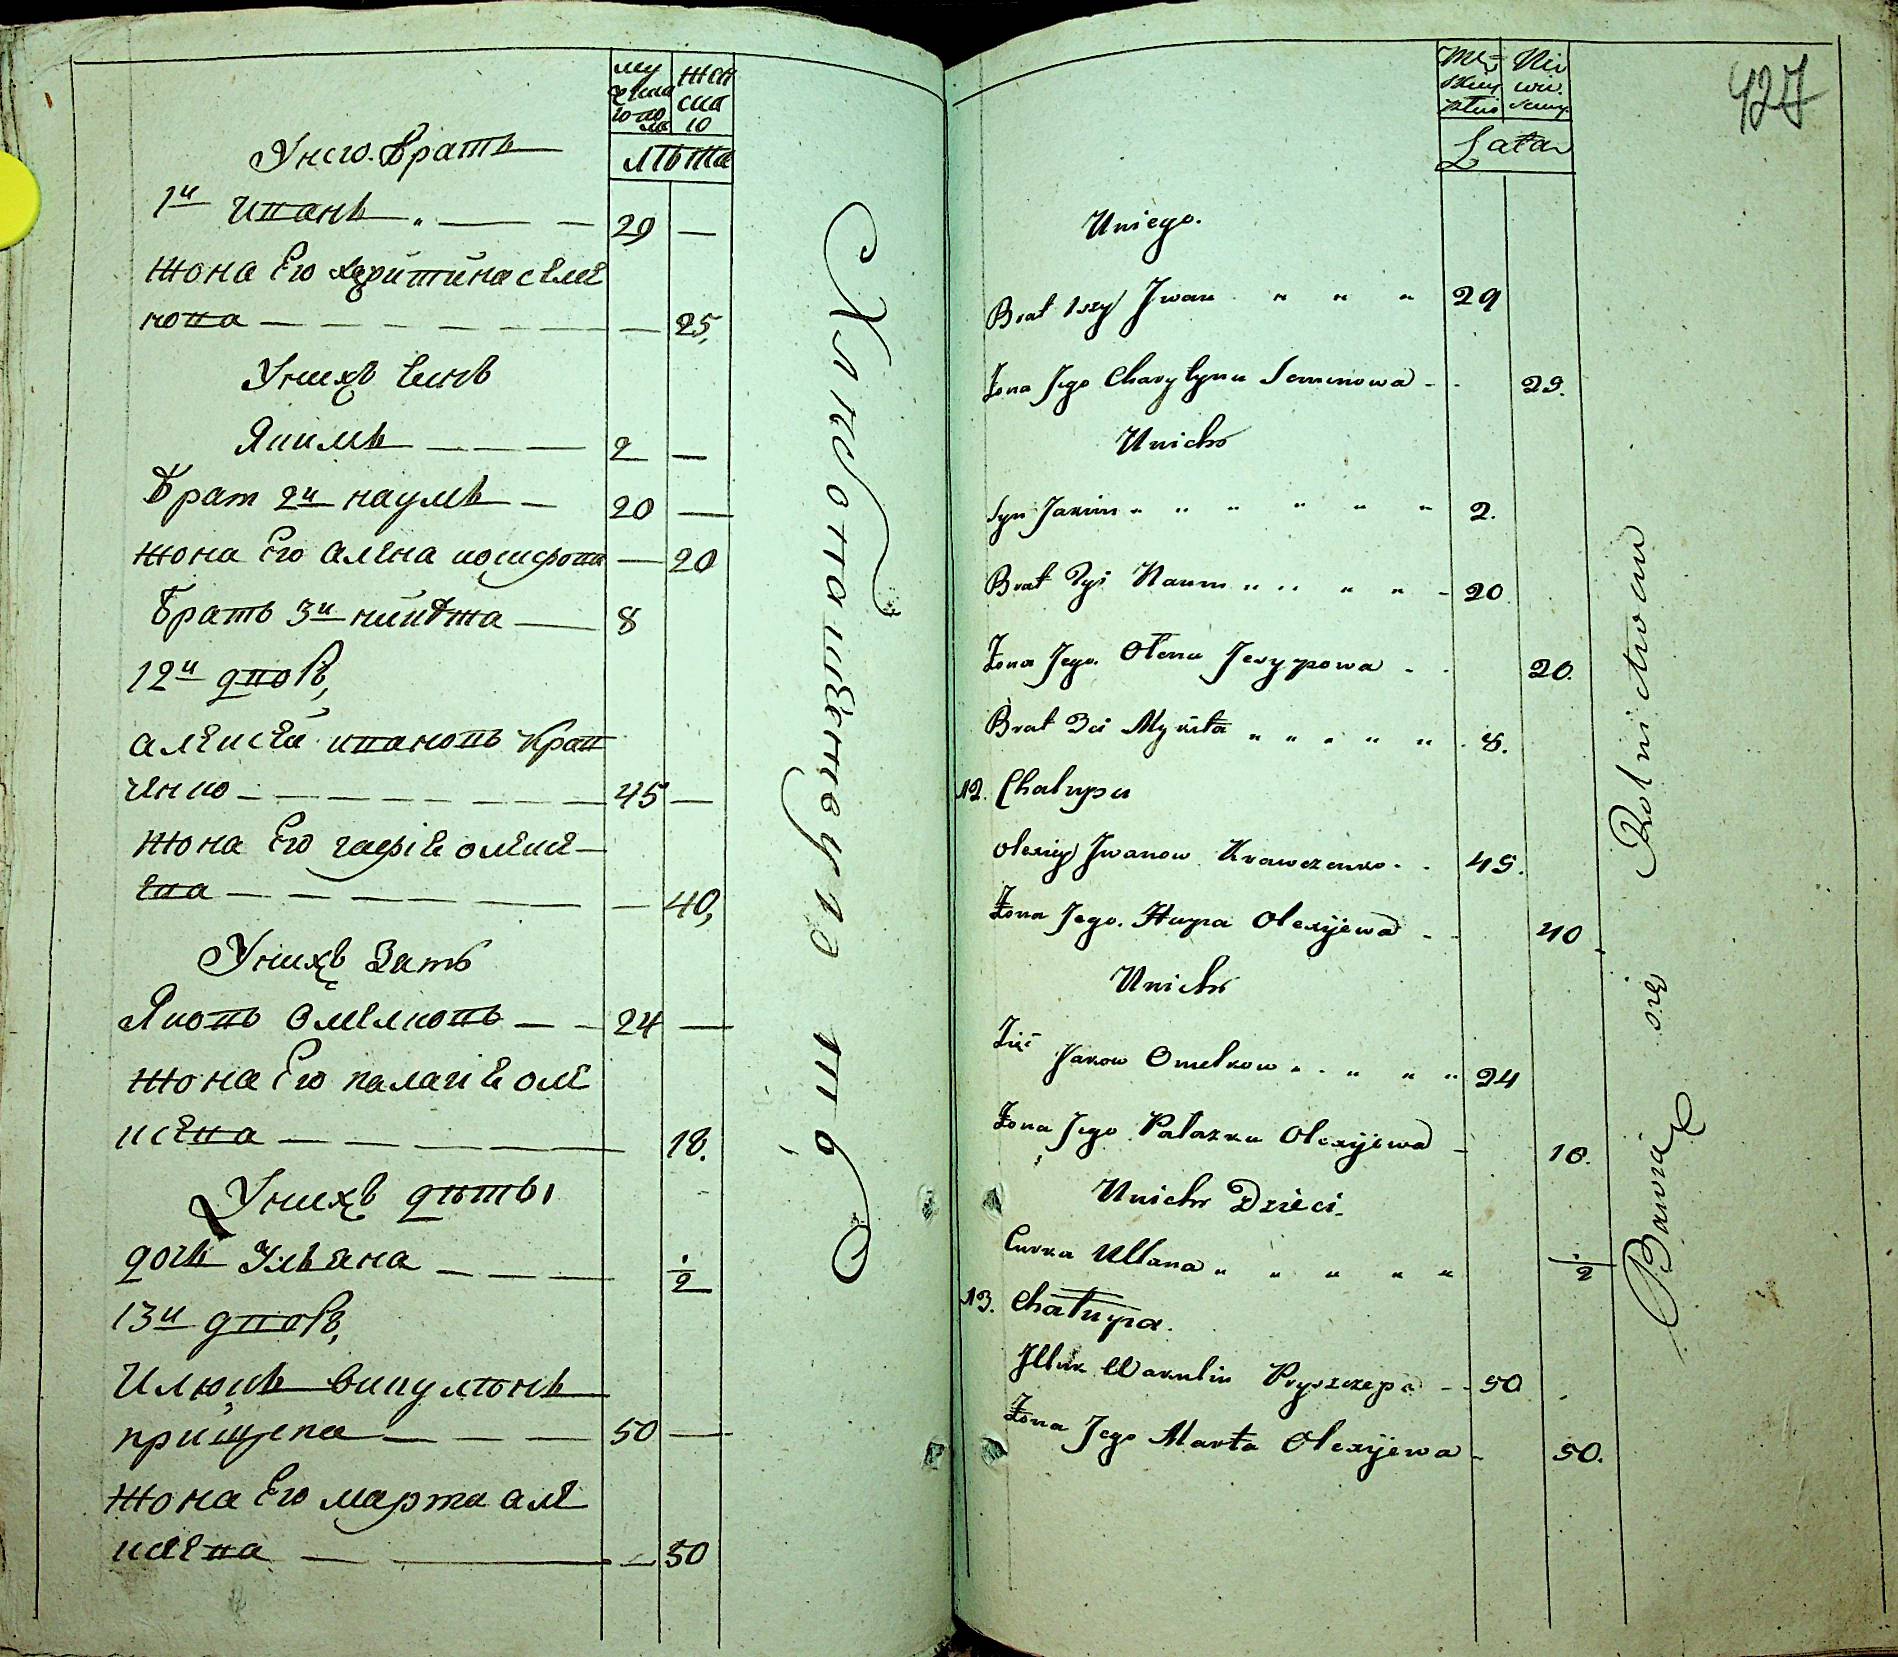 мужеска го пола
женска го
лѣта
У него братъ
1й иванъ 29 —
жона Его харитина семе
нова — 25,
У нихъ синъ
Якимъ 2 —
Брат 2й наумъ 20 —
жона Его алена иосифова — 20
Братъ 3й никита 8
12й дворъ,
алексей ивановъ крав
ченко 45 —
жона Его гафiя олекс
Ева — 40,
У нихъ зять
Яковъ омелковъ 24 —
жона Его палагiя оле
ксева 18.
У нихъ дѣти
дочь Ульяна 1/2
13й дворъ,
Илюкъ викулинъ
прищепа 50 —
жона Его марта але
ксева — 50
Męz
skiej
płci
Nie
wie.
Lata
427
Uniego.
Brat 1szy Jwan " " " 29
Żona Jego Charytyna Semenowa 29.
Unich
Syn Jakim " " " " " " 2.
Brat 2gi Naum " " " " 20
Żona Jego. Ołena Jesypowa 20.
Brat 3ci Mykita " " " " " 8.
12. Chałupa
Olexiey Jwanow Krawczenko 45.
Żona Jego. Hapa Olexijewa 40
Unich
Zięć Jakow Omelkow " " " " 24
Żona Jego Pałazka Olexijewa 18.
Unich Dzieci.
Curka Ullana " " " " " 1/2
13. Chałupa.
Jlluk Wakulin Pryszczepa 50
Żona Jego Marta Olexijewa 50.
Bawią się Rolnictwem